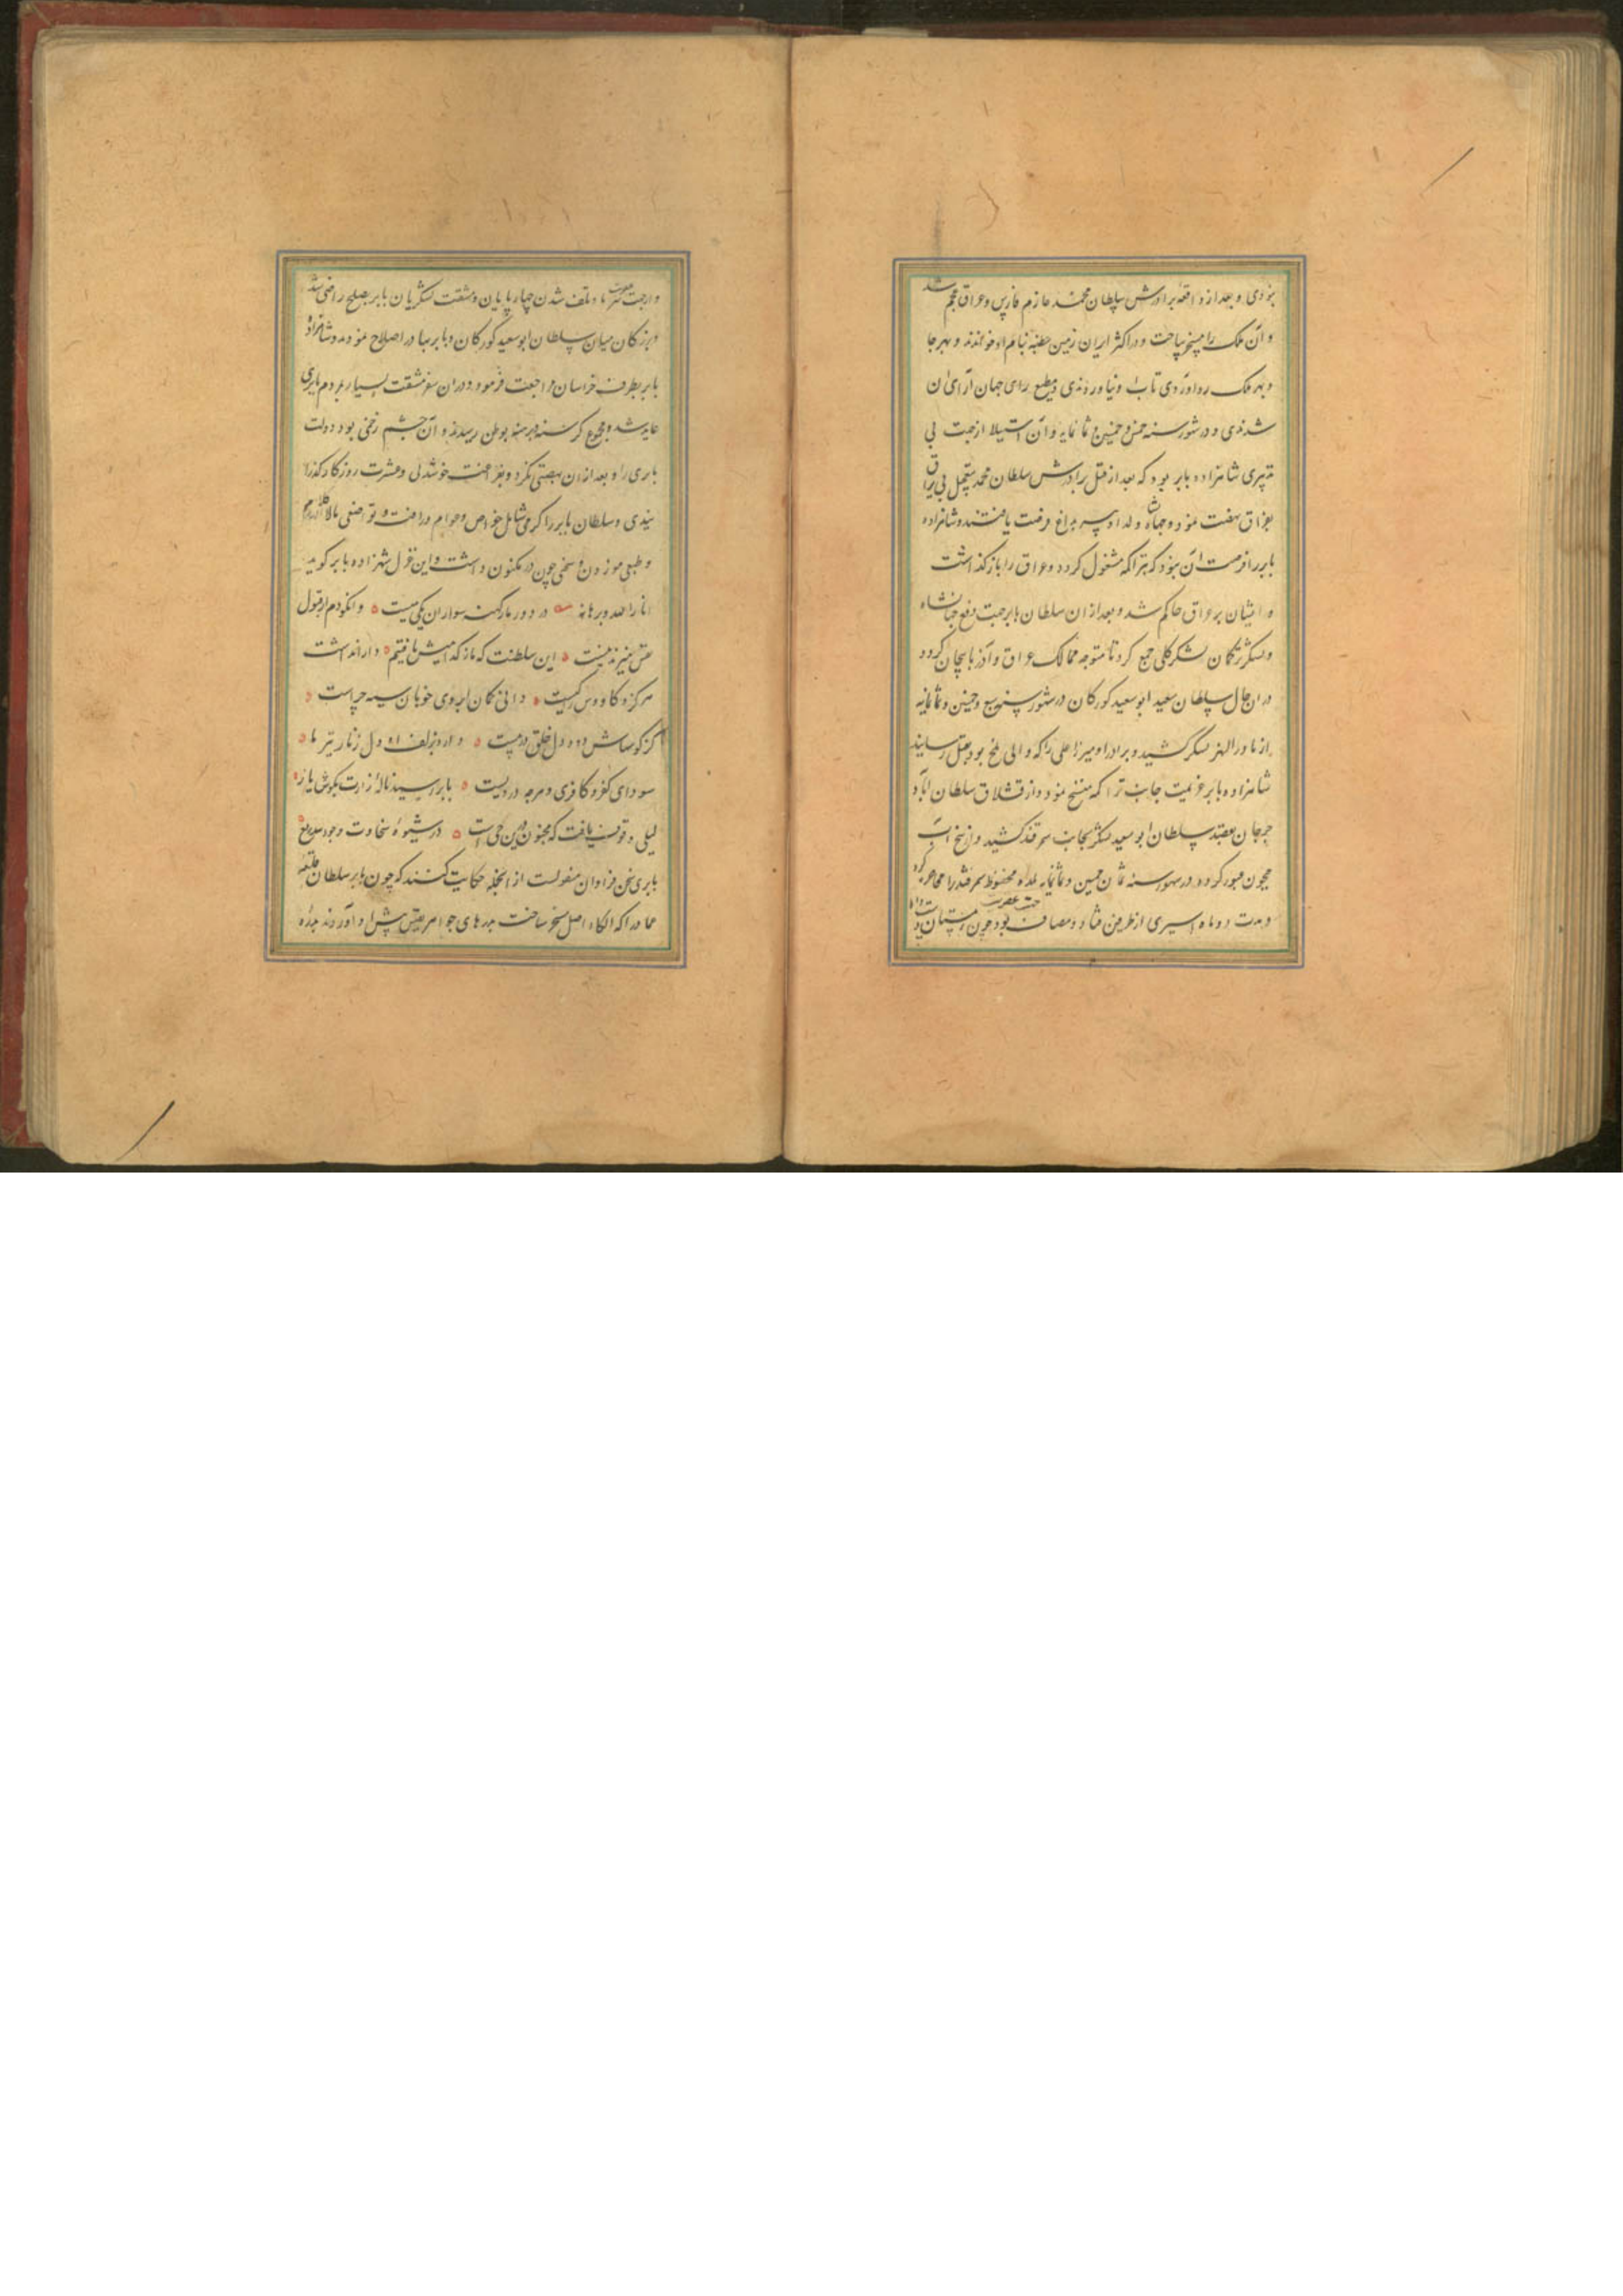 بنودی و بعد از واقعه برادرش سلطان محمد عازم فارس و عراق عجم شد
و آن ملک را مسخر ساخت و در اکثر ایران زمین خطبه بنام او خواندند و بهر جا
و بهر ملک رو اوردی تاب او نیاوردندی و مطیع رای جهان آرای او
شدندی و در شهور سنه خمس و خمسین و ثمانمایه و آن استیلا از جهت بی
تدبیری شاهزاده بابر بود که بعد از قتل برادرش سلطان محمد بتعجیل بی یراق
بعراق نهضت نمود و جهانشاه و اولاد او پیر بداغ فرصت یافتند و شاهزاده
بابر را فرصت آن نبود که بتراکمه مشغول کردد و عراق را باز کذاشت
و ایشان بر عراق حاکم شد و بعد از ان سلطان بابر جهت دفع جهانشاه
و لشکر ترکمان لشکر کلی جمع کرد تا متوجه ممالک عراق و آذربایجان کردد
در ان حال سلطان سعید ابو سعید کورکان در شهور سنه سبع و خمسین و ثمانمایه
از ماورالنهر لشکر کشید و برادر او میرزا علی را که والی بلخ بود بقتل رسانید
شاهزاده بابر عزیمت جانب تراکمه فسخ نمود و از قشلاق سلطان اباد
جرجان بقصد سلطان ابو سعید لشکر بجانب سمرقند کشید و از یخ آب
جیحون عبور کرد و در شهور سنه ثمان خمسین و ثمانمایه بلده محفوظه سمرقند را محاصره کرد
و مدت دو ماه اسیری از طرفین فتاد و مصاف بود چون زمستان
و از جهت تلف شدن چهارپایان و مشقت لشکریان بابر بصلح راضی شد
و بزرکان میان سلطان ابو سعید کورکان و بابر بنیاد اصلاح نمودند و شاهزاده
بابر بطرف خراسان مراجعت فرمود و در ان سفر مشقت بسیار بمردم بابری
عاید شد و مجموع کرسنه و برهنه بوطن رسیدند و آن چشم زخمی بود دولت
بابری را و بعد از ان نهضتی نکرد و بفراغت خوشدلی و عشرت روزکار کذرا
نیدی و سلطان بابر را کرمی شامل خواص و عوام و رافت و تواضعی مالاکلام
و طبعی موزون و سخنی چون در مکنون داشت و این غزل شهزاده بابر کوید
انار الله برهانه در دور ما ز کهنه سواران یکی میست و انکو دم از قبول
نفس میزند نیست این سلطنت که ما ز کدائیش یافتیم دارا نداشت
هرکز و کاووس را کیست دانی کمان ابروی خوبان سیه چراست
کز کوشهاش دود دل خلق در پیست دارد بزلف او دل زنار بند ما
سودای کفر و کافری و هرچه در ویست بابر رسید ناله زارت بکوش یار
لیلی وقوف یافت که مجنون درین حی است در شیوه سخاوت و جود
بابری سخن فراوان منقولست از انجمله حکایت کنند که چون بابر سلطان قلعه
عماد را که الکاء اصل مسخر ساخت بدرهای جواهر نفیس پیش او آوردند بدره